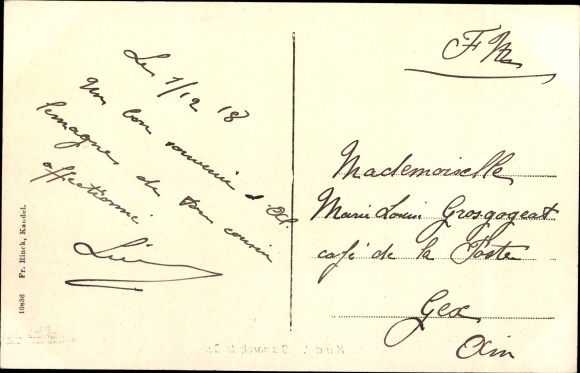 Le 1/12 18
Un bon souvenir d'Al.
lemagne, de ton cousin
affectionné
F M
Mademoiselle
Marie Louise Grosgogeat
café de la Poste
Gex
Ain
10836 Fr. Rinck, Kandel.